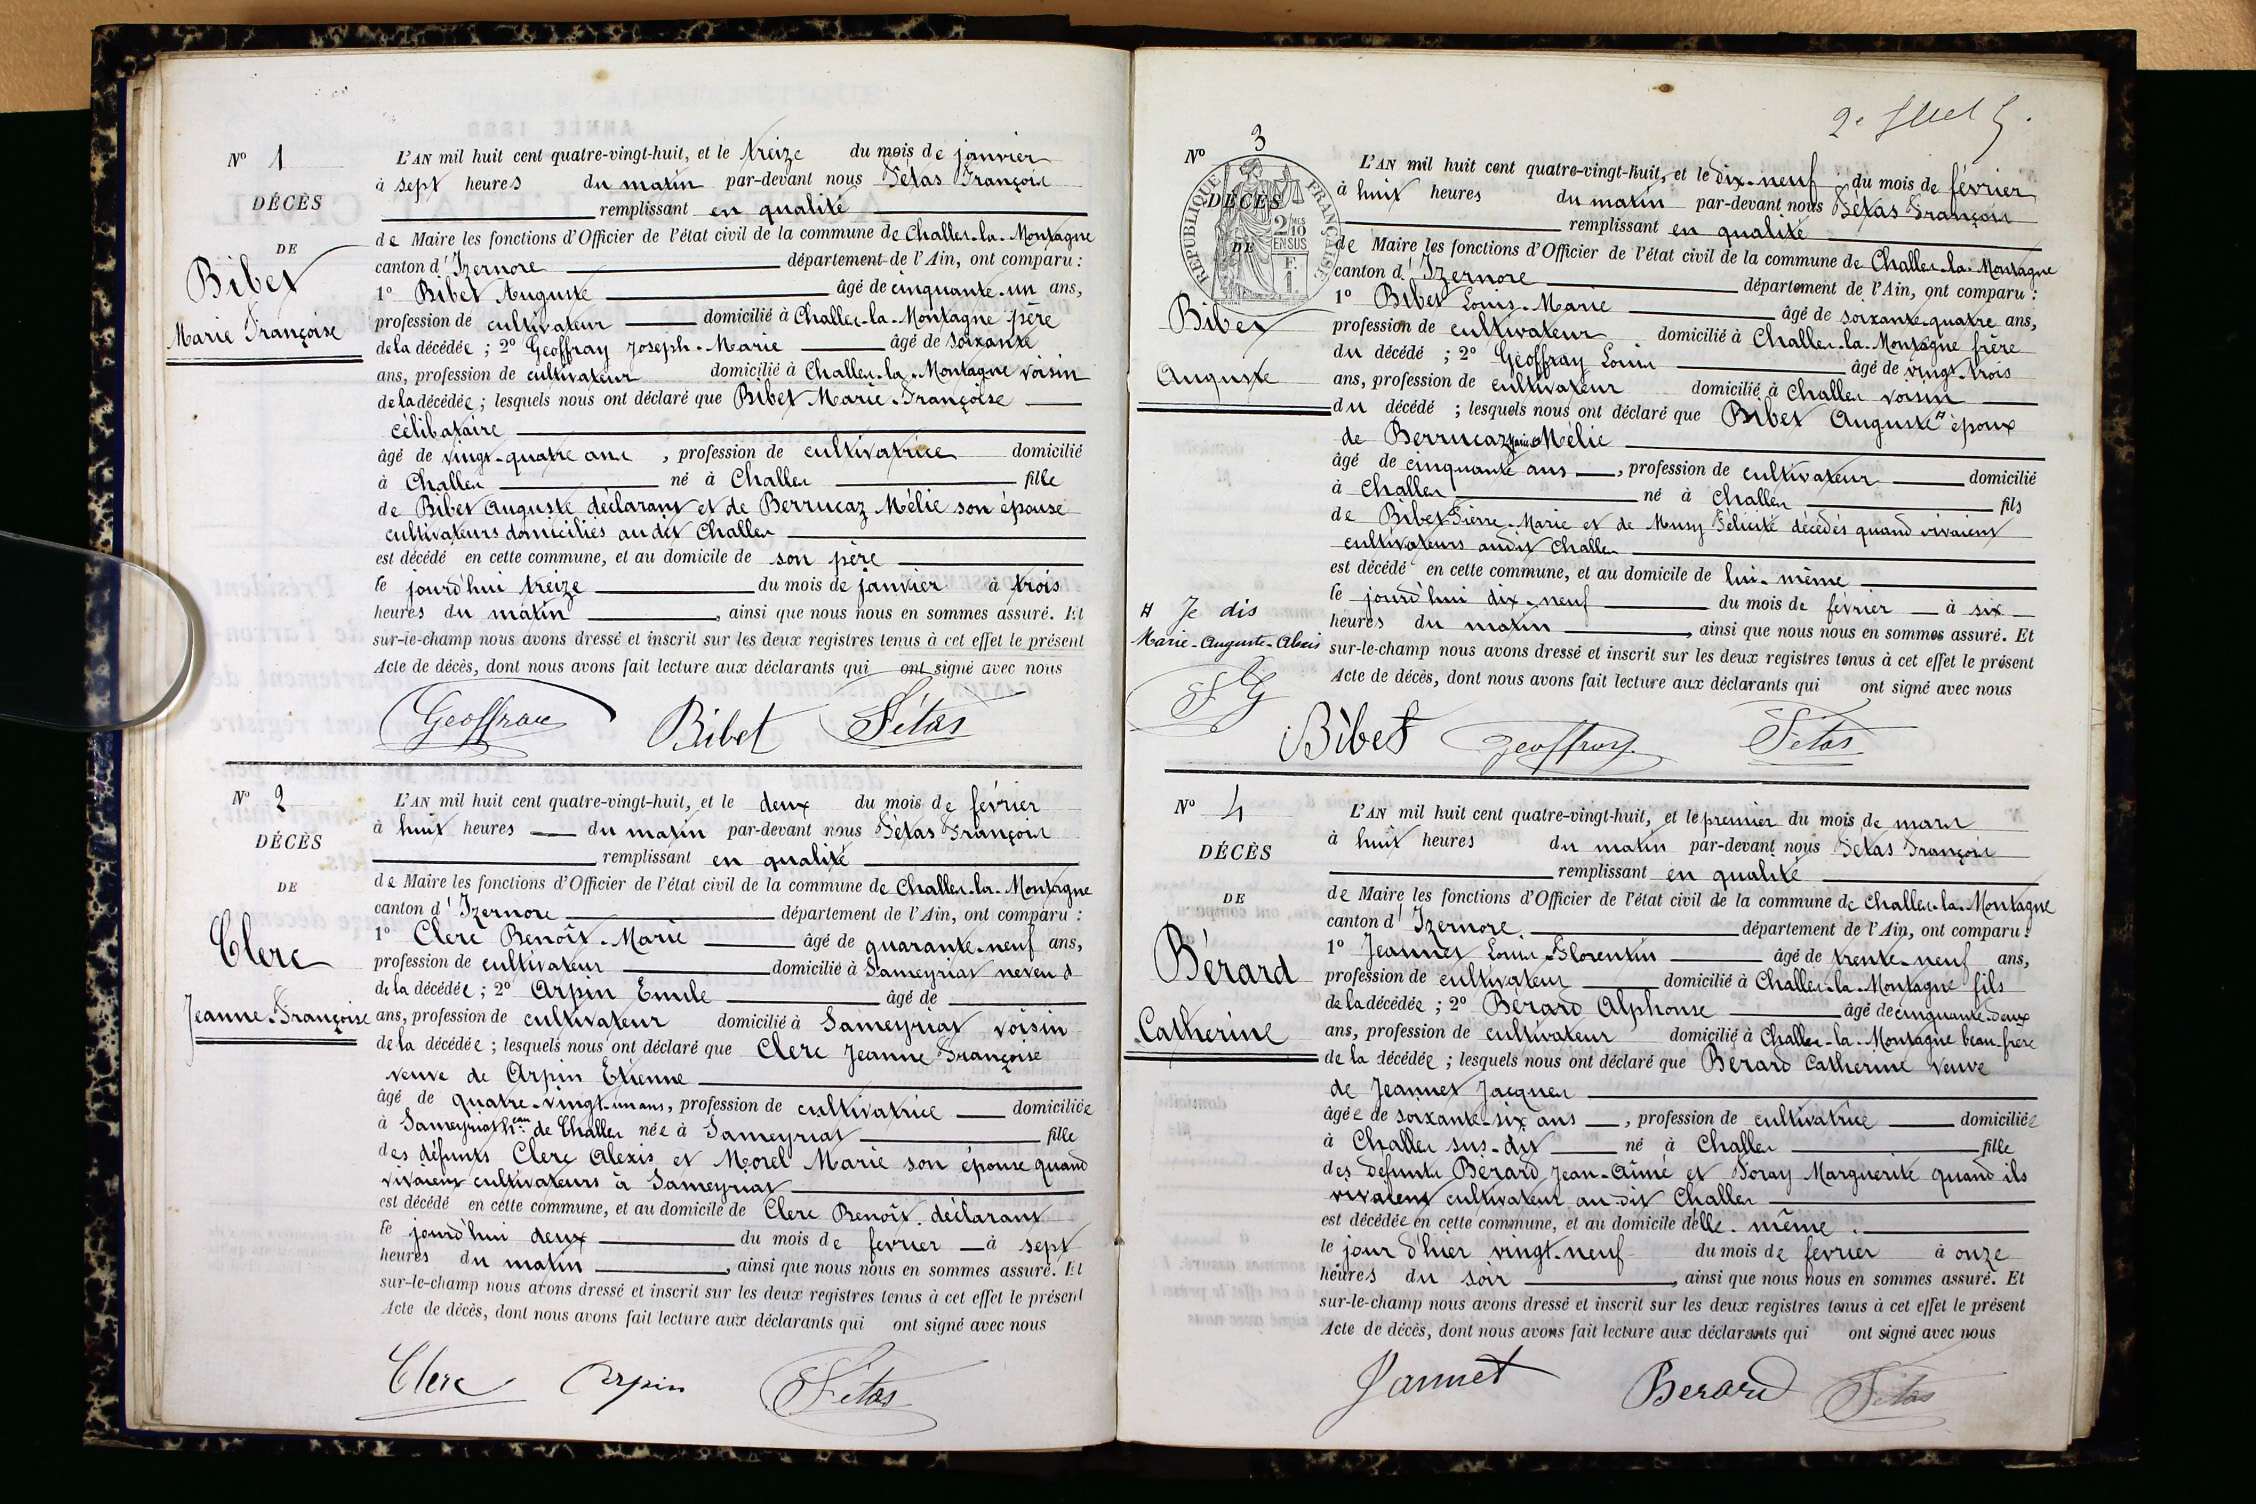 N° 1
DÉCÈS
DE
Bibet
Marie Françoise
L'AN mil huit cent quatre-vingt-huit, et le treize du mois de janvier
à sept heures du matin par-devant nous Fétas François
remplissant en qualité
de Maire les fonctions d'Officier de l'état civil de la commune de Challes-la-Montagne
canton d'Izernore département de l'Ain, ont comparu :
1° Bibet Auguste âgé de cinquante-un ans,
profession de cultivateur domicilié à Challes-la-Montagne père
de la décédée ; 2° Geoffray Joseph-Marie âgé de soixante
ans, profession de cultivateur domicilié à Challes-la-Montagne voisin
de la décédée ; lesquels nous ont déclaré que Bibet Marie-Françoise
célibataire
âgé de vingt-quatre ans, profession de cultivatrice domicilié
à Challes né à Challes fille
de Bibet Auguste déclarant et de Berrucaz Mélie son épouse
cultivateurs domiciliés audit Challes
est décédé en cette commune, et au domicile de son père
le jourd'hui treize du mois de janvier à trois
heures du matin, ainsi que nous nous en sommes assuré. Et
sur-le-champ nous avons dressé et inscrit sur les deux registres tenus à cet effet le présent
Acte de décès, dont nous avons fait lecture aux déclarants qui ont signé avec nous
Geoffray Bibet Fétas
N° 2
DÉCÈS
DE
Clerc
Jeanne-Françoise
L'AN mil huit cent quatre-vingt-huit, et le deux du mois de février
à huit heures du matin par-devant nous Fétas François
remplissant en qualité
de Maire les fonctions d'Officier de l'état civil de la commune de Challes-la-Montagne
canton d'Izernore département de l'Ain, ont comparu :
1° Clerc Benoît-Marie âgé de quarante-neuf ans,
profession de cultivateur domicilié à Sameyriat neveu d
de la décédée ; 2° Arpin Emile âgé de
ans, profession de cultivateur domicilié à Sameyriat voisin
de la décédée ; lesquels nous ont déclaré que Clerc Jeanne Françoise
veuve de Arpin Etienne
âgé de quatre-vingt-un ans, profession de cultivatrice domiciliée
à Sameyriat heau de Challes née à Sameyriat fille
des défunts Clerc Alexis et Morel Marie son épouse quand
vivaient cultivateurs à Sameyriat
est décédé en cette commune, et au domicile de Clerc Benoît, déclarant
le jourd'hui deux du mois de fevrier à sept
heures du matin, ainsi que nous nous en sommes assuré. Et
sur-le-champ nous avons dressé et inscrit sur les deux registres tenus à cet effet le présent
Acte de décès, dont nous avons fait lecture aux déclarants qui ont signé avec nous
Clerc Arpin Fétas
N° 3
DÉCÈS
DE
RÉPUBLIQUE FRANÇAISE
2/10 MES
EN SUS
F.
1.
Bibet
Auguste
L'AN mil huit cent quatre-vingt-huit, et le dix-neuf du mois de février
à huit heures du matin par-devant nous Fétas François
remplissant en qualité
de Maire les fonctions d'Officier de l'état civil de la commune de Challes-la-Montagne
canton d'Izernore département de l'Ain, ont comparu :
1° Bibet Louis-Marie âgé de soixante-quatre ans,
profession de cultivateur domicilié à Challes-la-Montagne frère
du décédé ; 2° Geoffray Louis âgé de vingt-trois
ans, profession de cultivateur domicilié à Challes voisin
du décédé ; lesquels nous ont déclaré que Bibet Auguste # époux
de Berrucaz Mélie
âgé de cinquante ans, profession de cultivateur domicilié
à Challes né à Challes fils
de Bibet Pierre-Marie et de Musy Félicité décédés quand vivaient
cultivateurs audit Challes
est décédé en cette commune, et au domicile de lui-même
le jourd'hui dix-neuf du mois de février à six
heures du matin, ainsi que nous nous en sommes assuré. Et
sur-le-champ nous avons dressé et inscrit sur les deux registres tenus à cet effet le présent
Acte de décès, dont nous avons fait lecture aux déclarants qui ont signé avec nous
# Je dis
Marie-Auguste-Alexis
Bibet Geoffray Fétas
N° 4
DÉCÈS
DE
Bérard
Catherine
L'AN mil huit cent quatre-vingt-huit, et le premier du mois de mars
à huit heures du matin par-devant nous Fétas François
remplissant en qualité
de Maire les fonctions d'Officier de l'état civil de la commune de Challes-la-Montagne
canton d'Izernore. département de l'Ain, ont comparu :
1° Jeannet Louis-Florentin âgé de trente-neuf ans,
profession de cultivateur domicilié à Challes-la-Montagne fils
de la décédée ; 2° Bérard Alphonse âgé de cinquante-deux
ans, profession de cultivateur domicilié à Challes-la-Montagne beau-frère
de la décédée ; lesquels nous ont déclaré que Bérard Catherine veuve
de Jeannet Jacques
âgée de soixante-six ans, profession de cultivatrice domiciliée
à Challes sus-dit né à Challes fille
des défunts Bérard Jean-Aimé et Foray Marguerite quand ils
vivaient cultivateurs au-dit Challes
est décédée en cette commune, et au domicile d'elle-même.
le jour d'hier vingt-neuf du mois de fevrier à onze
heures du soir, ainsi que nous nous en sommes assuré. Et
sur-le-champ nous avons dressé et inscrit sur les deux registres tenus à cet effet le présent
Acte de décès, dont nous avons fait lecture aux déclarants qui ont signé avec nous
Jannet Berard Fétas